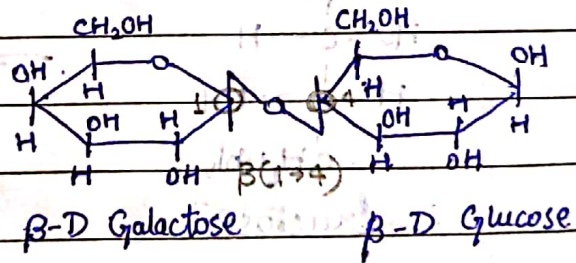 CH₂OH CH₂OH
OH O O OH
H H
1 4
OH H OH H
H H
H OH H OH
β(1→4)
β-D Galactose β-D Glucose